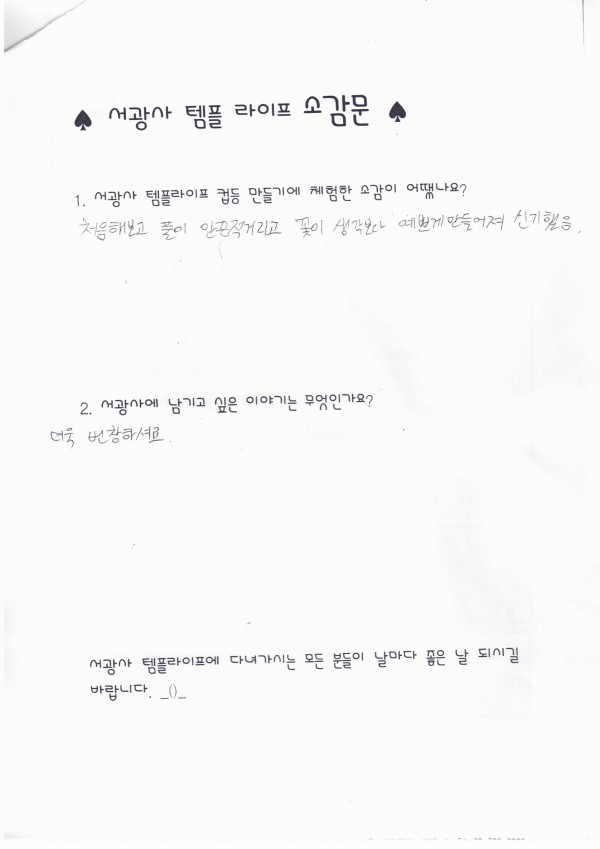 ♠ 서광사 템플 라이프 소감문 ♠
1. 서광사 템플라이프 컵등 만들기에 체험한 소감이 어땠나요?
처음해보고 풀이 안끈적거리고 꽃이 생각보다 예쁘게만들어져 신기했음.
2. 서광사에 남기고 싶은 이야기는 무엇인가요?
더욱 번창하셔요.
서광사 템플라이프에 다녀가시는 모든 분들이 날마다 좋은 날 되시길
바랍니다. _()_